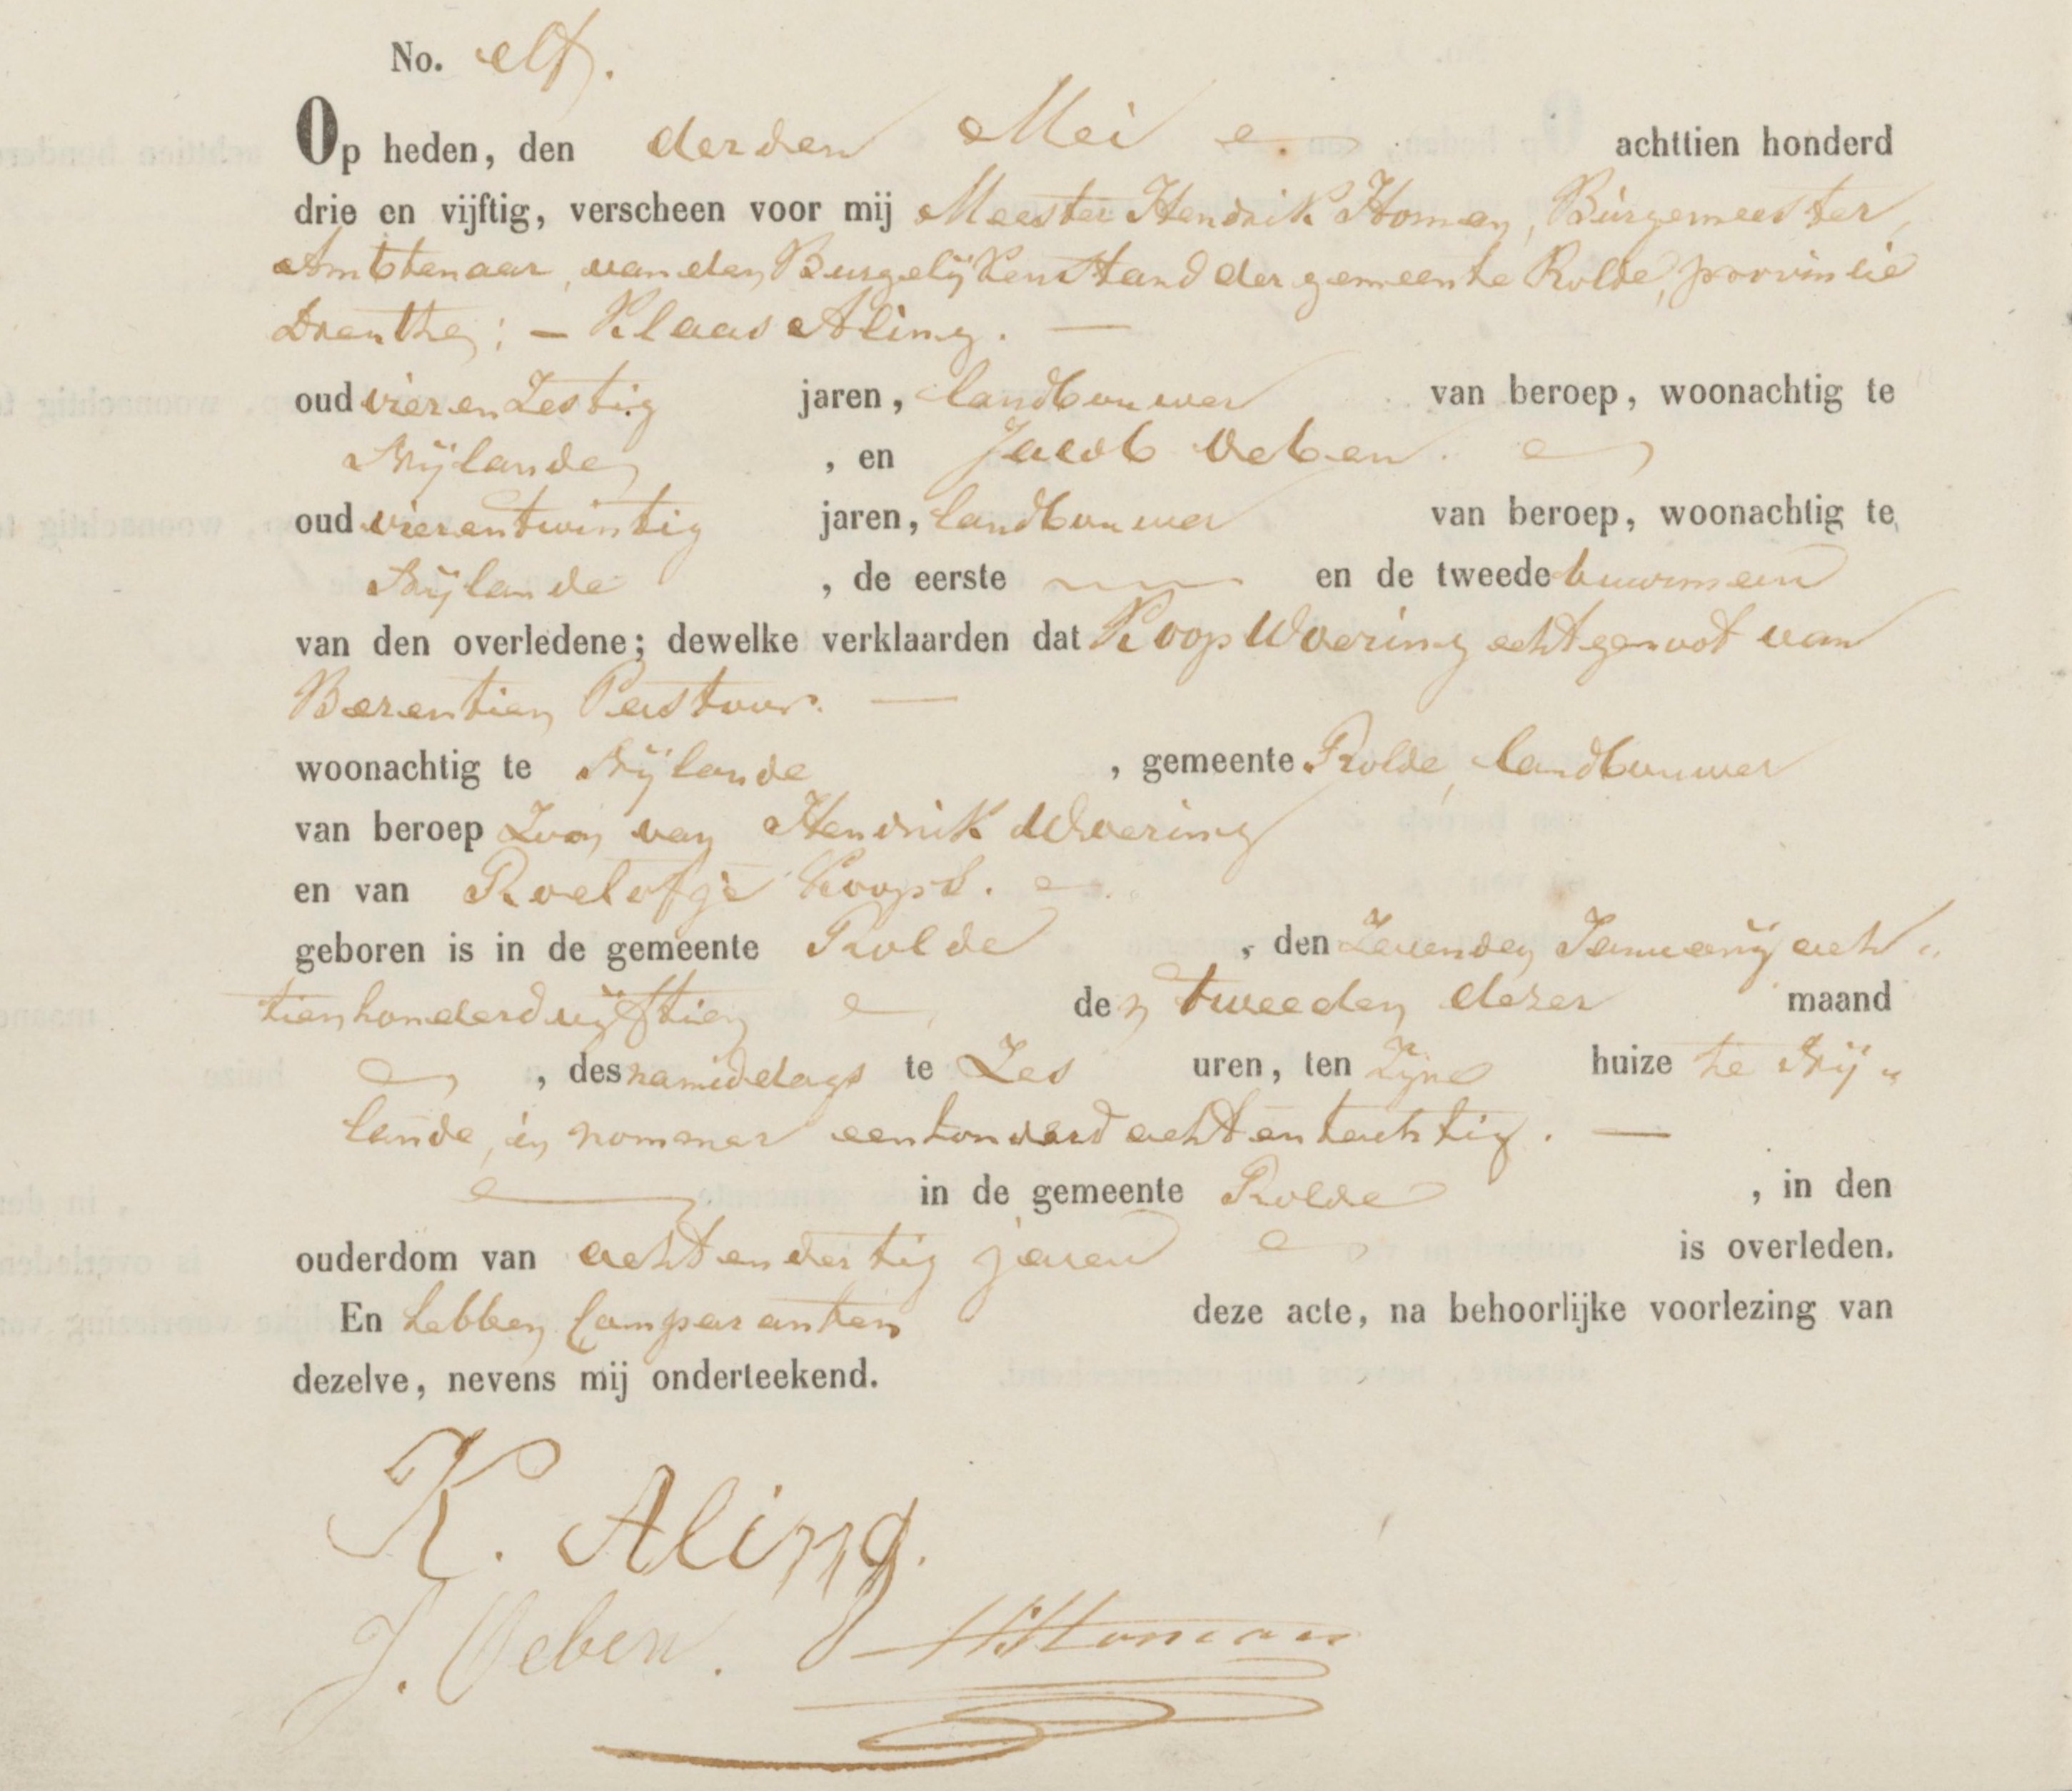 No. elf.
Op heden, den derden Mei achttien honderd
drie en vijftig, verscheen voor mij Meester Hendrik Homan, Burgemeester,
Ambtenaar, van den Burgelijken Stand der gemeente Rolde, provincie
Drenthe; – Klaas Aling. —
oud vier en Zestig jaren, landbouwer van beroep, woonachtig te
Nijlande , en Jacob Oeben.
oud vierentwintig jaren, landbouwer van beroep, woonachtig te
Nijlande , de eerste en de tweede buurman
van den overledene; dewelke verklaarden dat Koop Woering echtgenoot van
Berentien Pastoor. —
woonachtig te Nijlande , gemeente Rolde, landbouwer
van beroep Zoon van Hendrik Woering
en van Roelofje Koops.
geboren is in de gemeente Rolde , den Zevenden Januarij ach„
tienhonderdvijftien den tweeden dezer maand
, des namiddags te Zes uren, ten Zijne huize te Nij„
lande, in nommer eenhonderd achtentachtig. —
in de gemeente Rolde , in den
ouderdom van achtendertig jaren is overleden.
En hebben Comparanten deze acte, na behoorlijke voorlezing van
dezelve, nevens mij onderteekend.
K. Aling.
J. Oeben. HHoman